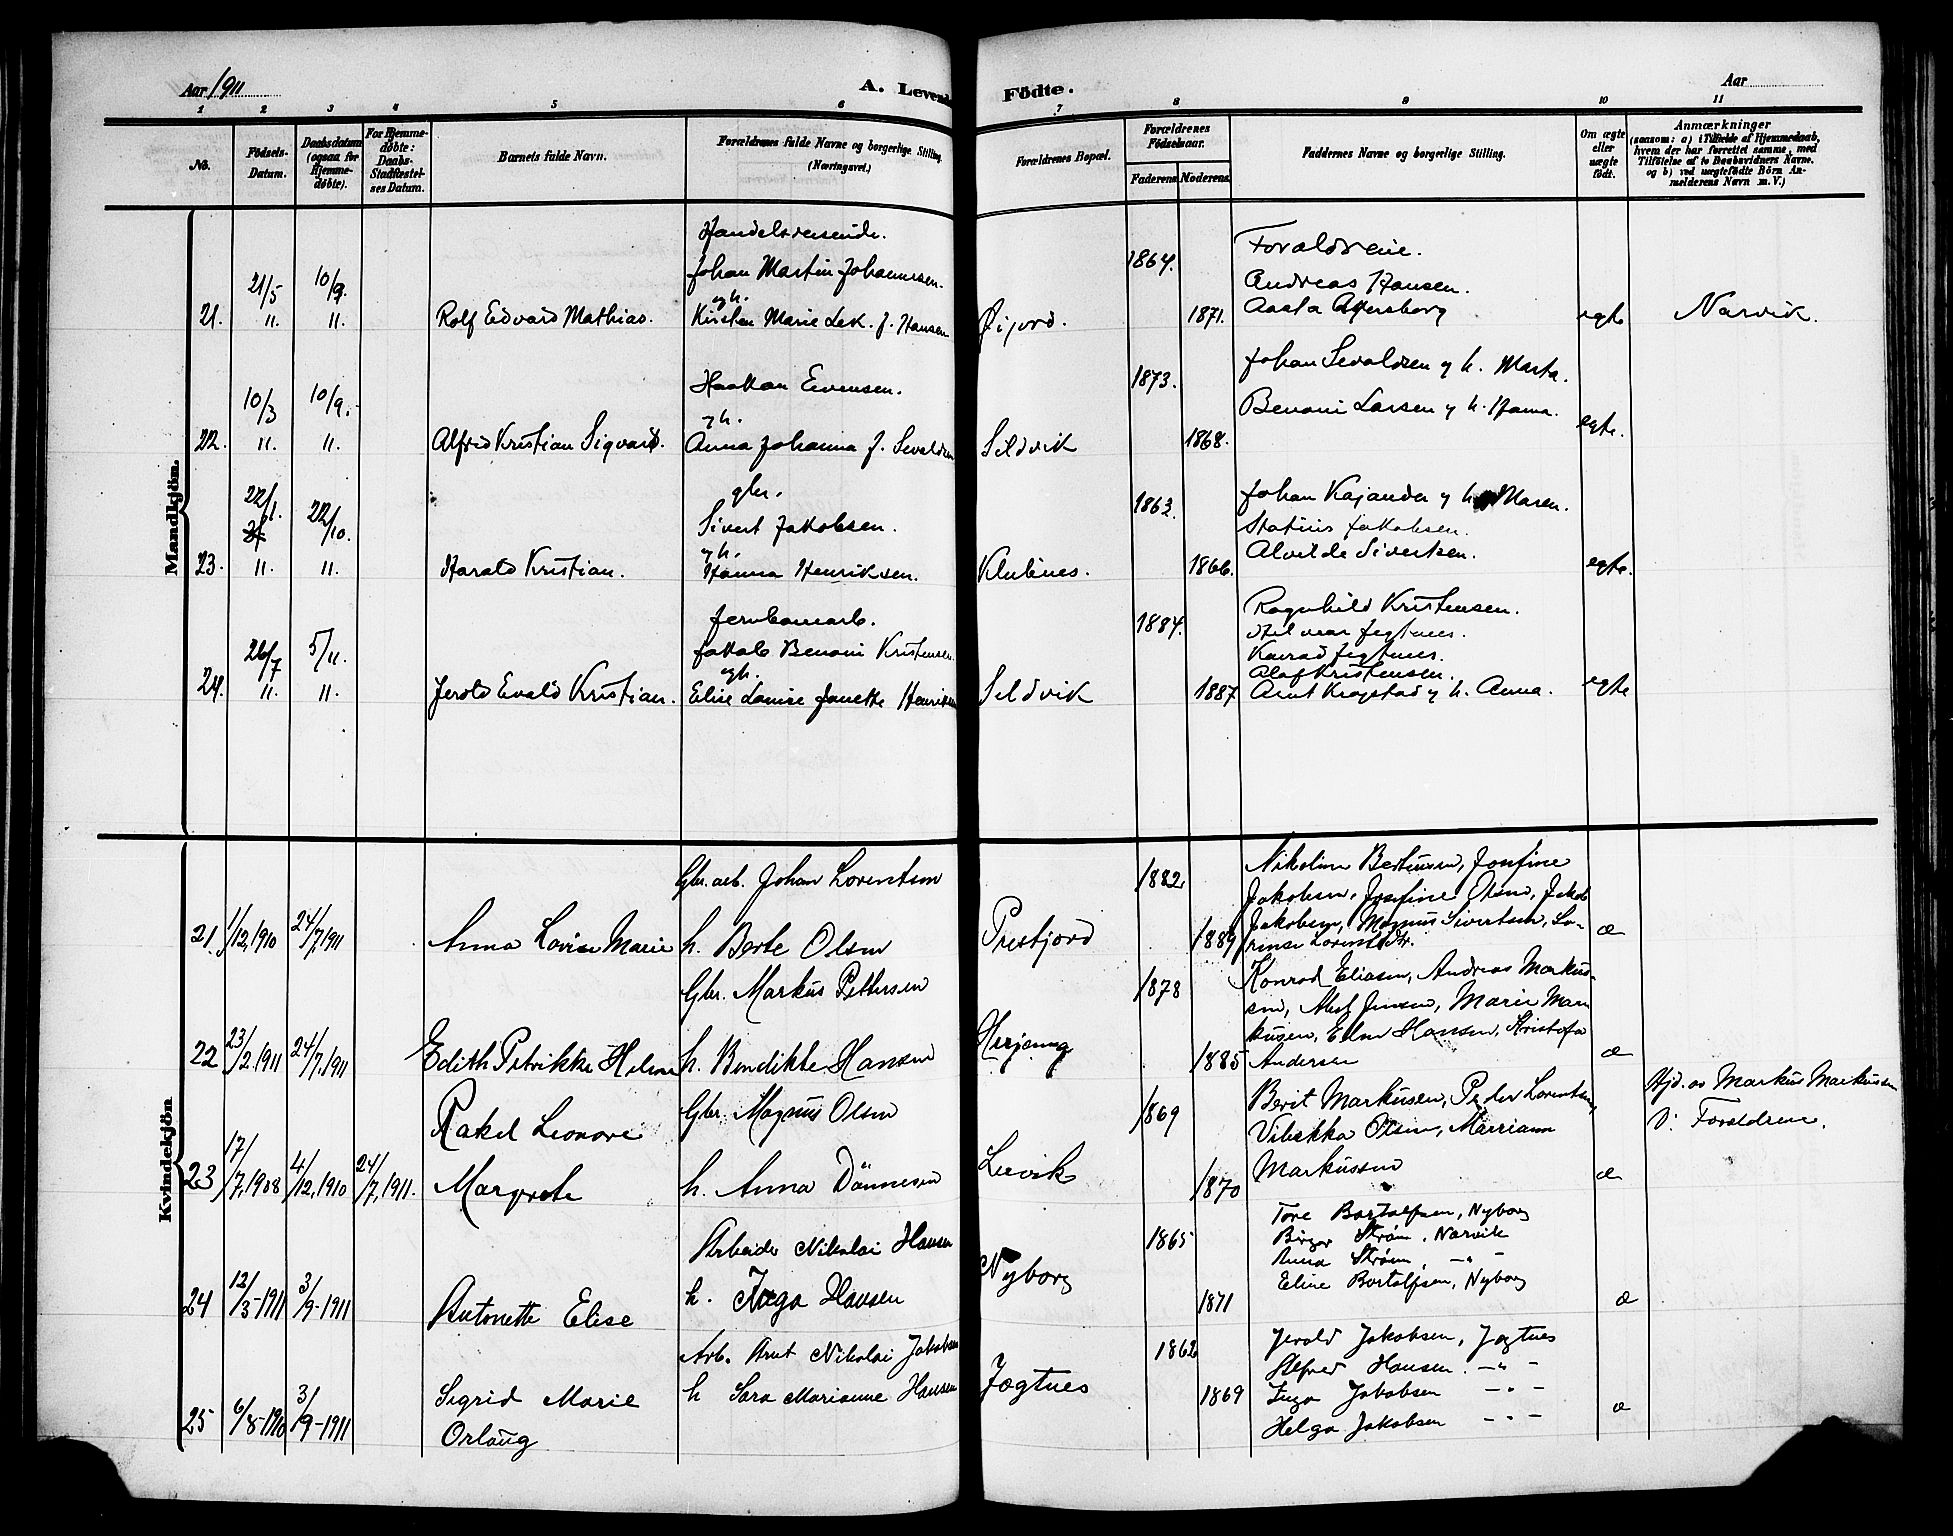 Aar 1911
A. Levende
Födte.
Aar
1 2 3 4 5 6 7 8 9 10 11
No.
Födsels-
Datum.
Daabsdatum
(ogsaa for
Hjemme-
døbte).
For Hjemme-
døbte:
Daabs-
Stadfæstel-
ses Datum.
Barnets fulde Navn.
Forældrenes fulde Navne og borgerlige Stilling.
(Næringsvei.)
Forældrenes Bopæl.
Forældrenes
Födselsaar.
Faderens. Moderens.
Faddernes Navne og borgerlige Stilling.
Om ægte
eller
uægte
født.
Anmærkninger
(saasom: a) i Tilfælde af Hjemmedaab,
hvem der har forrettet samme, med
Tilföielse af to Daabsvidners Navne.
og b) ved uægtefødte Börn An-
melderens Navn m. V.)
Mandkjön.
21.
21/5
11.
10/9.
11.
Rolf Edvard Mathias.
Handelsreisende.
Johan Martin Johannesen.
gh.
Kirsten Marie Lek. f. Hansen
Øijord.
1864.
1871.
Forældrene.
Andreas Hansen.
Aasta
egte
Narvik.
22.
10/3
11.
10/9.
11.
Alfred Kristian Sigvard.
Haakon Evensen.
gh.
Anna Johanna f. Sevaldsen
Sildvik
1873.
1868.
Johan Sevaldsen g h. Marta.
Benoni Larsen g h. Hanna.
egte.
23.
22/1.
11.
22/10.
11.
Harald Kristian.
gbr.
Sivert Jakobsen.
gh.
Hanna Henriksen.
Klubnes.
1863.
1866.
Johan Kajander g h. Maren.
Statius Jakobsen.
Alvilde Sivertsen.
egte.
24.
26/7
11.
5/11.
11.
Jerold Evald Kristian.
Jernbanearb.
Jakob Benoni Kristensen.
gh.
Elise Lovise Janette Henriksen
Sildvik
1884.
1887
Ragnhild Kristensen.
Hilmar Jegtnes.
Konrad Jegtnes.
Olaf Kristensen.
Arnt Krogstad g h. Anna.
egte
Kvindekjön
21.
1/12, 1910
24/7, 1911
Anna Lovise Marie
Gbr. arb. Johan Lorentsen
h. Berte Olsen
Prestjord
1882.
1889
Nikoline Berteussen, Josefine
Jakobsen, Josefine Olsen, Jakob
Jakobsen, Magnus Sivertsen, Lo-
rense Lorentsdtr.
æ
22
23/2, 1911
24/7, 1911
Edith Petrikke Helene
Gbr. Markus Pettersen
h. Bendikte Hansen
Herjang
1878
1885
Konrad Eliasen, Andreas Markus-
sen, Jensen, Marie Mar-
kusen, Hansen, Kristofa
Andersen
æ
23
17/7, 1908
4/12, 1910
24/7, 1911.
Rakel Leonore
Margrete
Gbr. Magnus Olsen
h. Anna Dönnesen
Leervik
1869
1870
Berit Markusen, Peder Lorentsen,
Vibekka Olsen, Marriann
Markussen
æ
Hjd. av Markus Markussen
V: Forældrene.
24
12/3-1911
3/9-1911
Antonette Elise
Arbeider Nikolai Hansen
h. Inga Hansen
Nyborg
1865
1871
Tore Bertolfsen, Nyborg
Birger Strøm, Narvik
Anna Strøm, -"-
Eline Bertolfsen, Nyborg
æ
25
6/8-1910
3/9-1911
Sigrid Marie
Orlaug
Arb. Arnt Nikolai Jakobsen
h Sara Marianne Hansen
Jægtnes
1862
1869
Jerold Jakobsen, Jægtnes
Alfred Hansen. -"-
Inga Jakobsen -"-
Helga Jakobsen -"-
æ